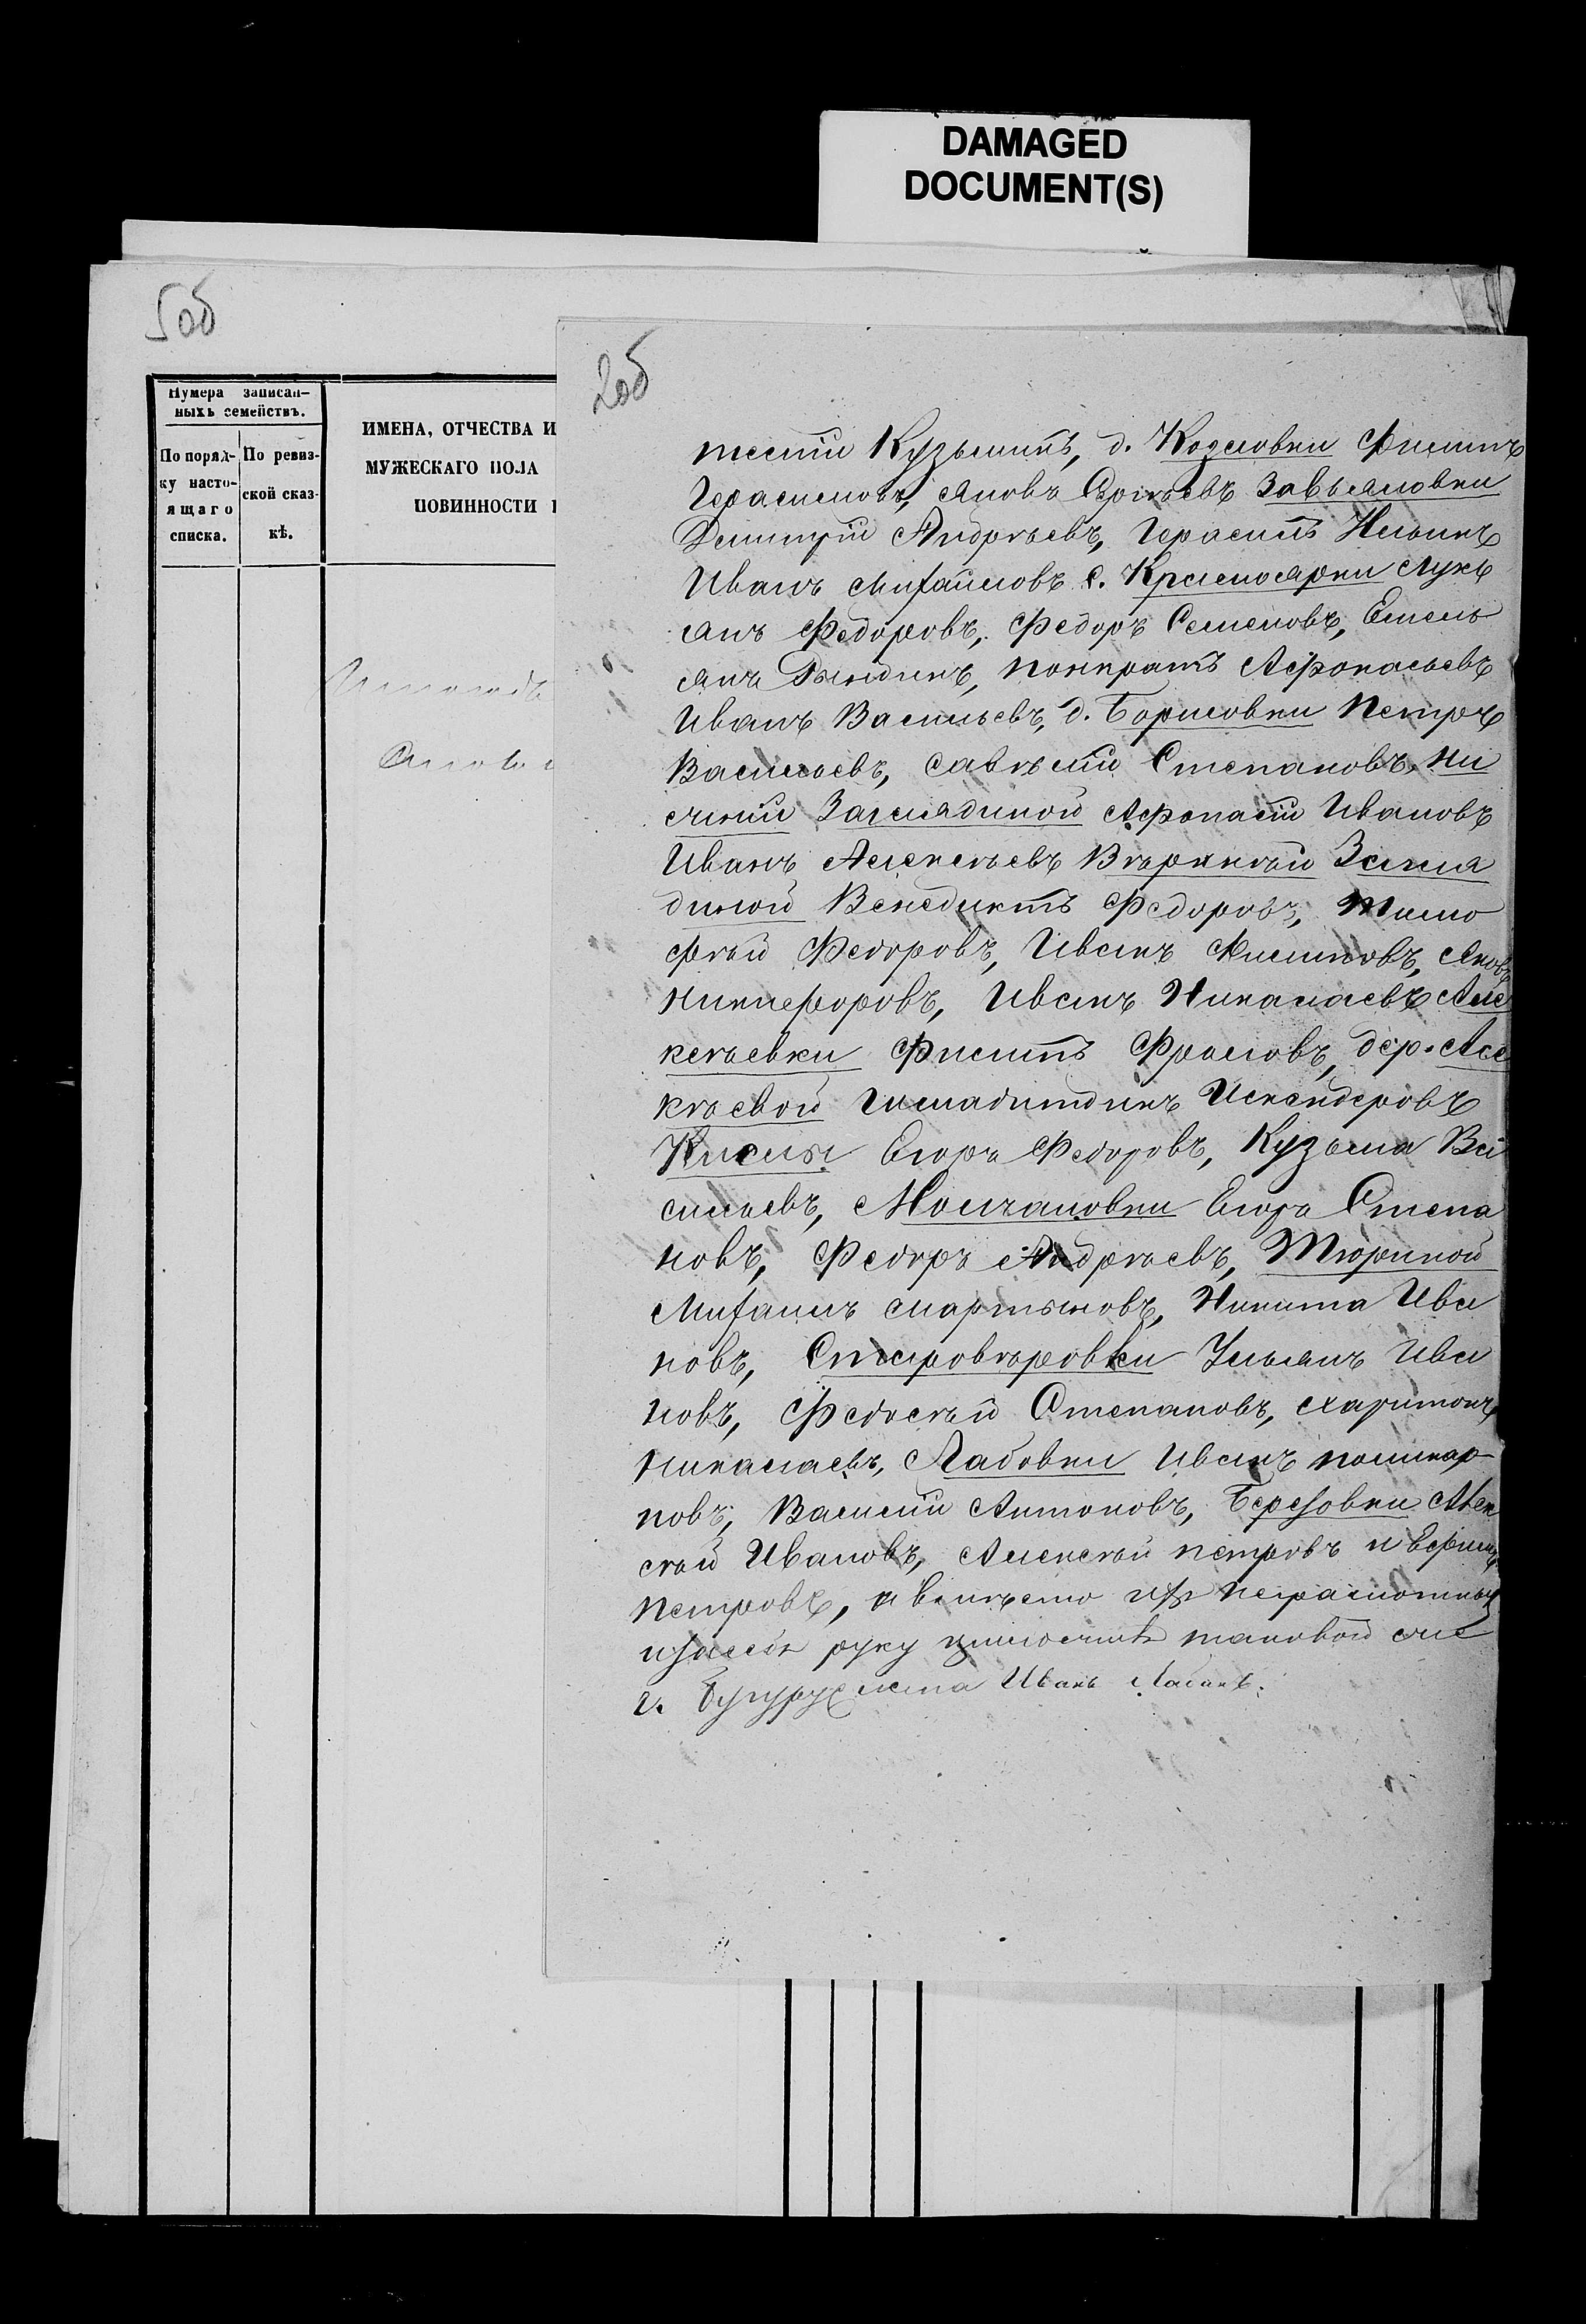 DAMAGED
DOCUMENT(S)
5 об
2 об
Нумера записан-
ныхъ семействъ.
По поряд-
ку насто-
ящаго
списка.
По ревиз-
ской сказ-
кѣ.
ИМЕНА, ОТЧЕСТВА И
МУЖЕСКАГО ПОЛА
ПОВИННОСТИ
Кузьминъ, д. Козловки Филипъ
Герасимовъ, Яковъ Завьяловки
Дмитрій Андрѣевъ, Герасимъ Ильинъ
Иванъ Михайловъ с. Красноярки Лукь
янъ Федоровъ, Федоръ Семеновъ, Емель
янъ Понкратъ Афонасьевъ
Иванъ Васильевъ, д. Борисовки Петръ
Васильевъ, Савѣлій Степановъ, Ни
жній Заглядиной Афонасій Ивановъ
Иванъ Алексѣевъ Вѣрхнѣй Загля
диной Венедиктъ Федоровъ, Тимо
фѣй Федоровъ, Иванъ Филиповъ, Яковъ
Никифоровъ, Иванъ Никалаевъ Але
ксѣевки Филипъ Фроловъ, дер. Асе
кѣевой Искендеровъ
Кислы Егоръ Федоровъ, Кузьма Ва
сильевъ, Молчановки Егоръ Степа
новъ, Федоръ Андрѣевъ, Тюриной
Михаилъ Мартыновъ, Никита Ива
новъ, Старовѣровки Ульянъ Ива
новъ, Федосѣй Степановъ, Харитонъ
Никалаевъ, Лабовки Иванъ Поликар
повъ, Василій Антоновъ, Березовки Алек
сѣй Ивановъ, Алексѣй Петровъ и Ефимъ
Петровъ, а вмѣсто ихъ неграмотныхъ
руку таковой
г. Бугуруслана Иванъ